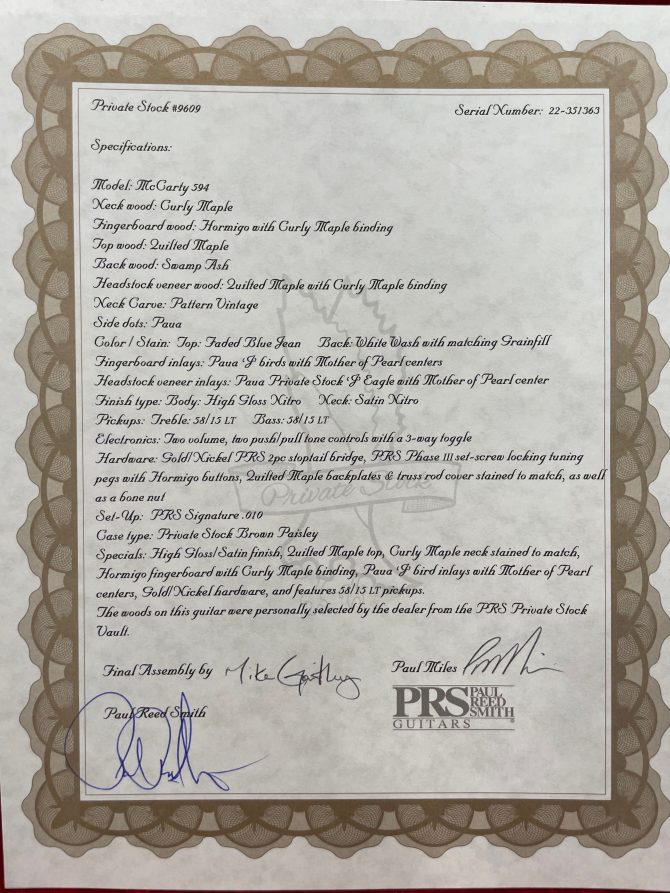 Private Stock #9609
Serial Number: 22-351363
Specifications:
Model: McCarty 594
Neck wood: Curly Maple
Fingerboard wood: Hormigo with Curly Maple binding
Top wood: Quilted Maple
Back wood: Swamp Ash
Headstock veneer wood: Quilted Maple with Curly Maple binding
Neck Carve: Pattern Vintage
Side dots: Paua
Color / Stain: Top: Faded Blue Jean Back: White Wash with matching Grainfill
Fingerboard inlays: Paua 'J' birds with Mother of Pearl centers
Headstock veneer inlays: Paua Private Stock 'J' Eagle with Mother of Pearl center
Finish type: Body: High Gloss Nitro Neck: Satin Nitro
Pickups: Treble: 58/15 LT Bass: 58/15 LT
Electronics: Two volume, two push/pull tone controls with a 3-way toggle
Hardware: Gold/Nickel PRS 2pc stoptail bridge, PRS Phase III set-screw locking tuning
pegs with Hormigo buttons, Quilted Maple backplates & truss rod cover stained to match, as well
as a bone nut
Private Stock
Set-Up: PRS Signature .010
Case type: Private Stock Brown Paisley
Specials: High Gloss/Satin finish, Quilted Maple top, Curly Maple neck stained to match,
Hormigo fingerboard with Curly Maple binding, Paua 'J' bird inlays with Mother of Pearl
centers, Gold/Nickel hardware, and features 58/15 LT pickups.
The woods on this guitar were personally selected by the dealer from the PRS Private Stock
Vault.
Final Assembly by Mike
Paul Miles
Paul Reed Smith
PRS PAUL REED SMITH
GUITARS